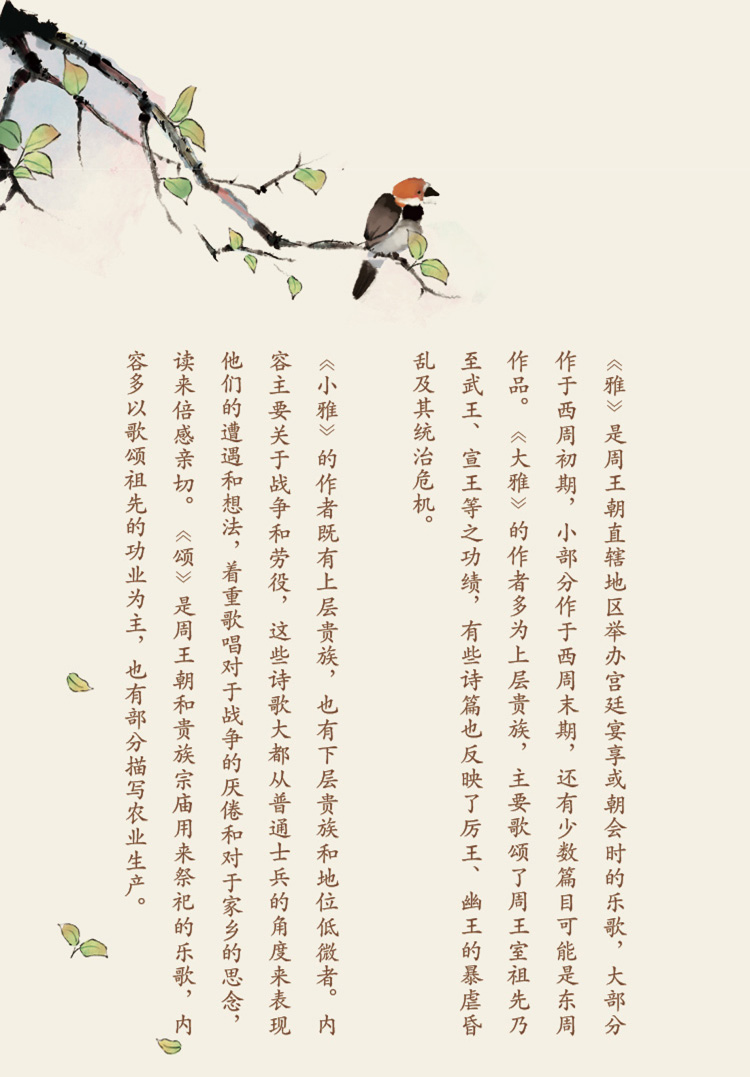 《雅》是周王朝直辖地区举办宫廷宴享或朝会时的乐歌，大部分
作于西周初期，小部分作于西周末期，还有少数篇目可能是东周
作品。《大雅》的作者多为上层贵族，主要歌颂了周王室祖先乃
至武王、宣王等之功绩，有些诗篇也反映了厉王、幽王的暴虐昏
乱及其统治危机。
《小雅》的作者既有上层贵族，也有下层贵族和地位低微者。内
容主要关于战争和劳役，这些诗歌大都从普通士兵的角度来表现
他们的遭遇和想法，着重歌唱对于战争的厌倦和对于家乡的思念，
读来倍感亲切。《颂》是周王朝和贵族宗庙用来祭祀的乐歌，内
容多以歌颂祖先的功业为主，也有部分描写农业生产。